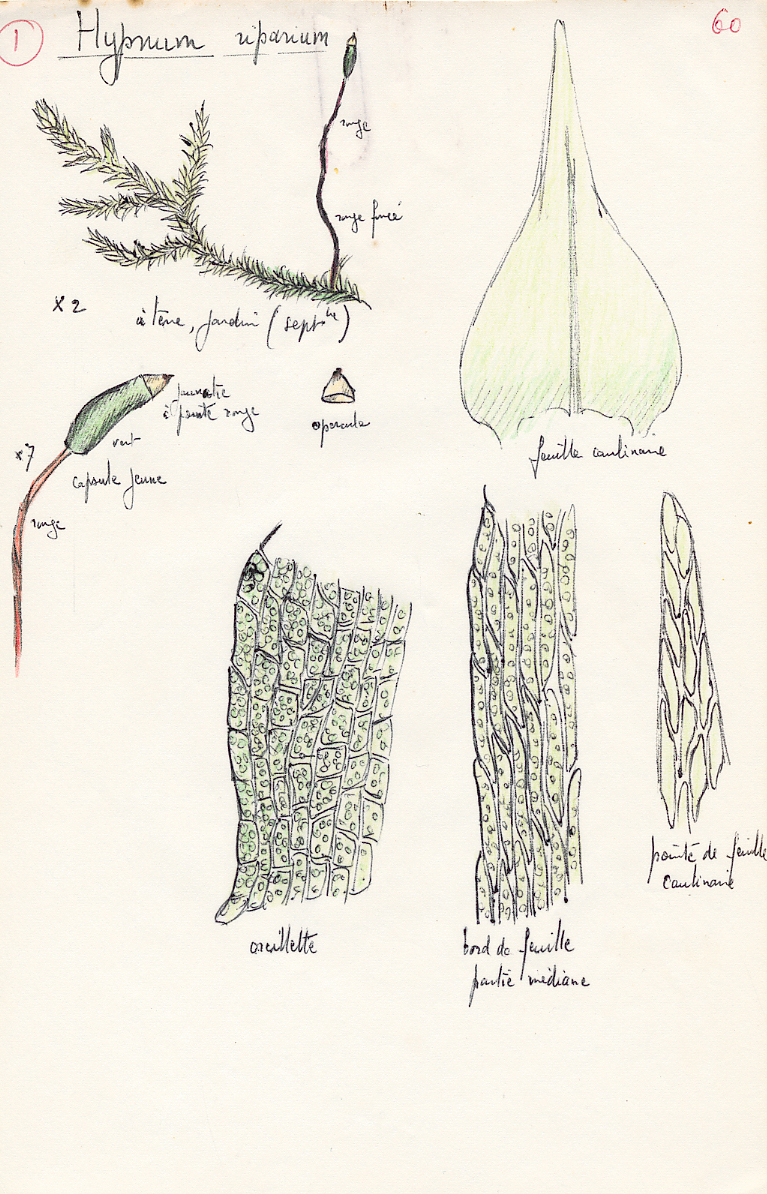 1
Hypnum riparium
60
rouge
rouge foncé
x 2
à terre, jardin (sept bre)
jaunâtre
à pointe rouge
opercule
vert
x7
capsule jeune
rouge
feuille caulinaire
oreillette
bord de feuille
partie médiane
pointe de feuille
caulinaire